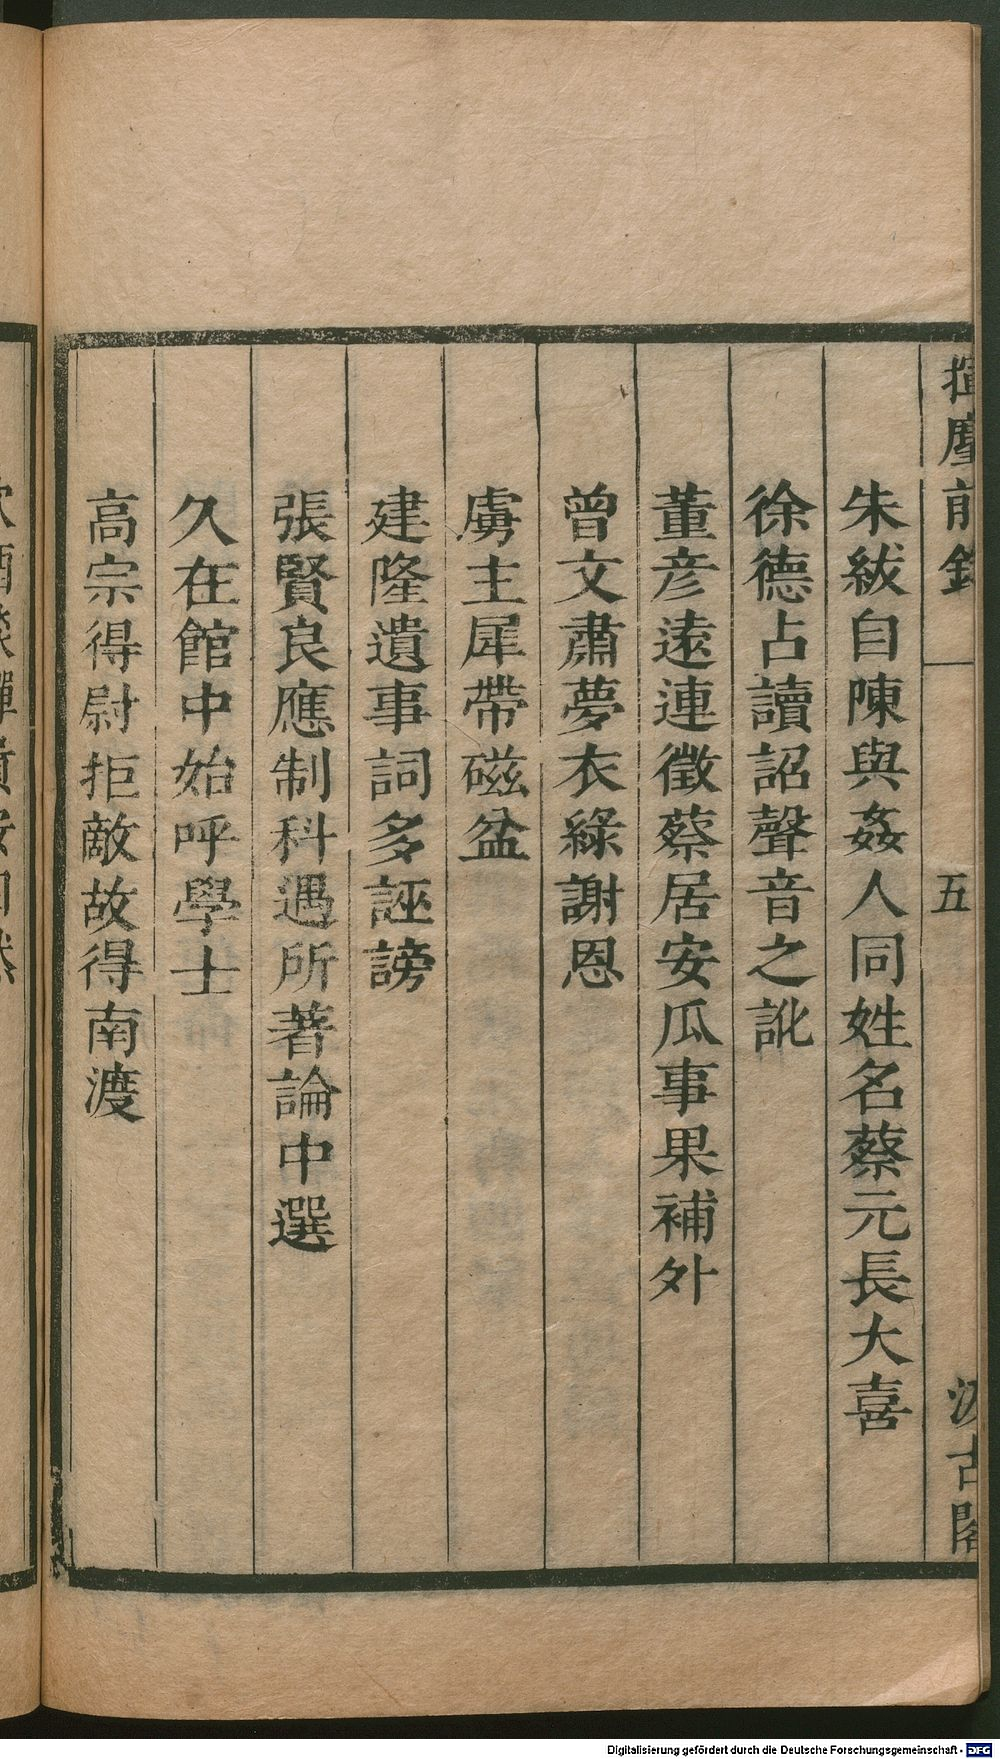 揮麈前錄 五 汲古閣
朱紱自陳與姦人同姓名蔡元長大喜
徐德占讀詔聲音之訛
董彥遠連徵蔡居安瓜事果補外
曾文肅夢衣綠謝恩
虜主犀帶磁盆
建隆遺事詞多誣謗
張賢良應制科遇所著論中選
久在館中始呼學士
高宗得尉拒敵故得南渡
Digitalisierung gefördert durch die Deutsche Forschungsgemeinschaft - DFG